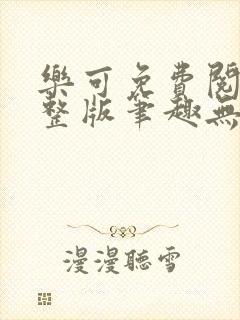 樂可免費閱
整版筆趣無
漫漫聽雪